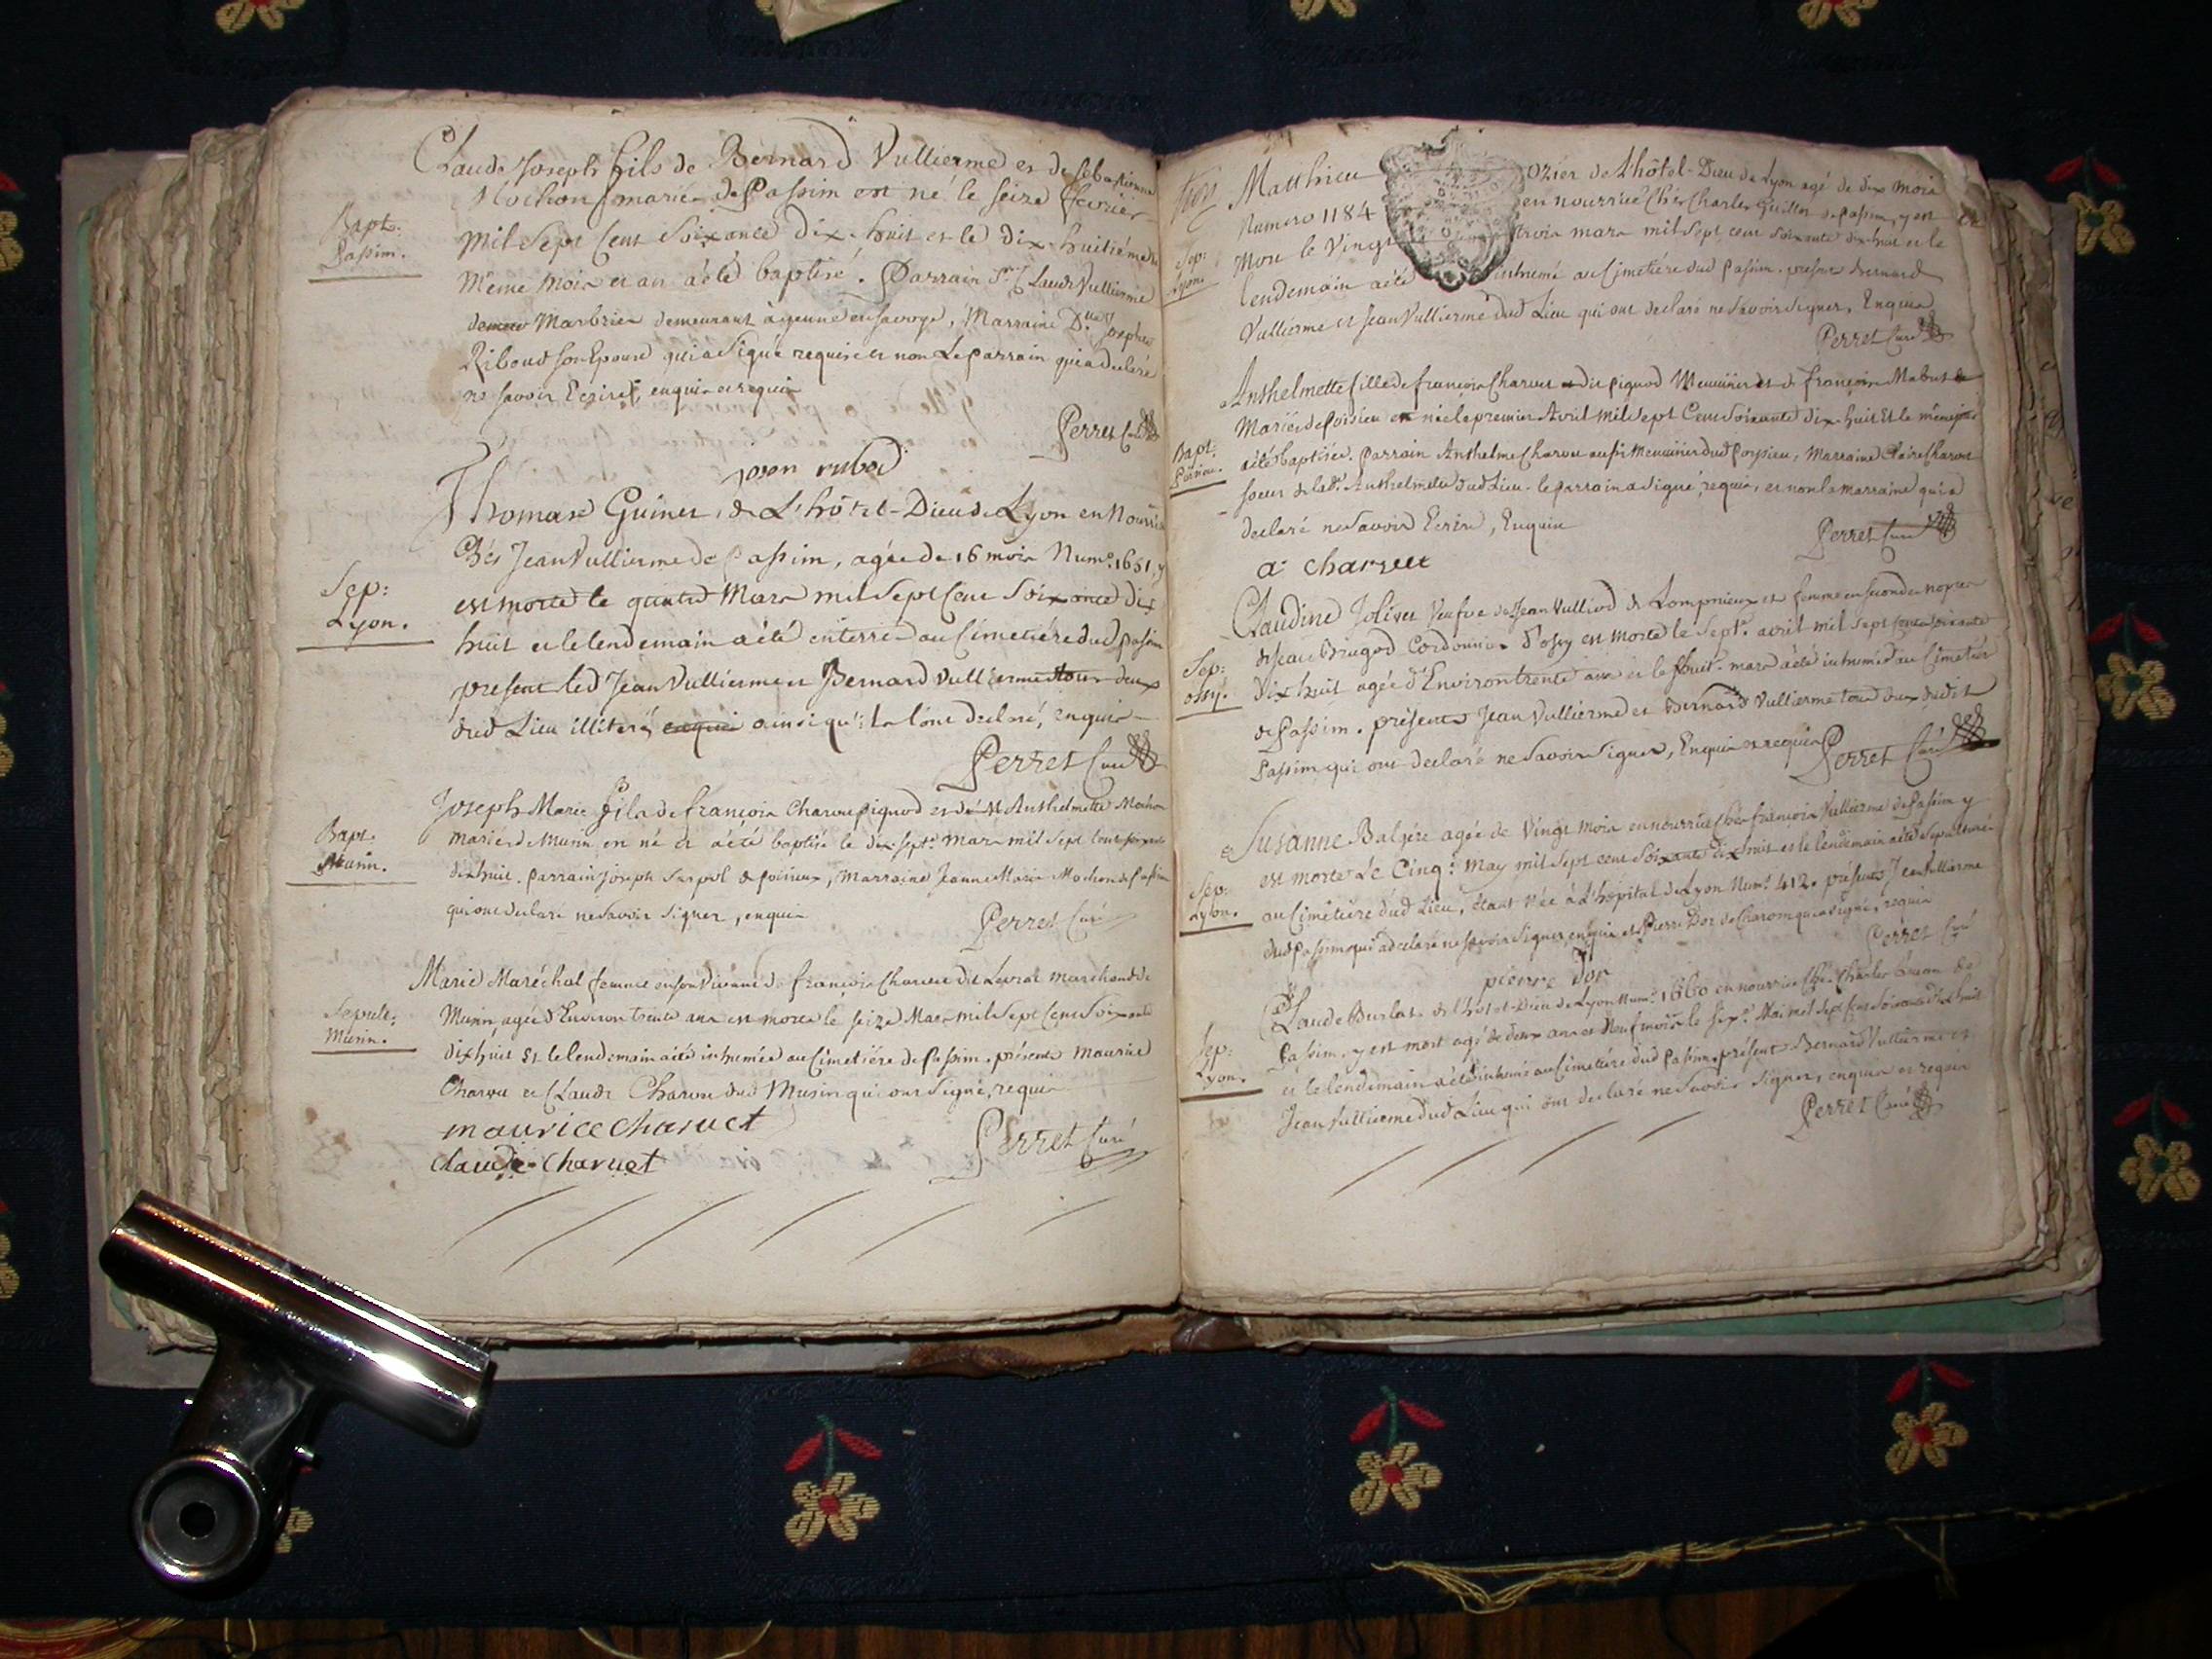 Claude Joseph fils de Bernard Vullierme et de Sebastienne
Mochon mariés de Passim est né le seize fevrier
Bapt: Passim.
mil sept cent soixante dix-huit et le dix-huitiéme du
même mois et an a été baptisé. Parrain Sr. Claude Vullierme
Marbrier demeurant à yenne en savoye, Marraine Dlle Josephte
Riboud son Epouse qui a signé requise et non Le parrain qui a declaré
ne savoir Ecrire, enquis et requis
Perret Curé
Thomase Guinet, de L'hôtel-Dieu de Lyon en Nourrice
Chés Jean Vullierme de Passim, agée de 16 mois Num° 1651, y
Sep: Lyon.
est morte le quatre Mars mil sept cent soixante dix
huit et le lendemain a été enterrée au Cimetiére dud Passim
present led Jean Vullierme et Bernard Vullierme tour deux
dud Lieu illiterés enquis ainsi qu'ils l'ont declaré, enquis
Perret Curé
Joseph Marie fils de françois Charvet Pignod et de Anthelmette Mochon
Bapt. Musin.
mariés de Musin est né et a été baptisé le dix-sept Mars mil sept cent soixante
dix huit. Parrain Joseph surpol de Poisieux, Marraine Jeanne Marie Mochon de Passim
qui ont declaré ne savoir signer, enquis
Perret Curé
Marie Maréchal femme en son Vivant de françois Charvet dit Levrat marchand de
Sepult: Musin.
Musin, agée d'Environ trente ans est morte le seize Mars mil sept cent soixante
dix huit et le lendemain a été inhumée au Cimetiére de Passim. présents Maurice
Charvet et Claude Charvet dud Musin qui ont signé, requis
maurice charuet
claude charuet
Perret Curé
Matthieu ozier de L'hôtel-Dieu de Lyon agé de dix mois
Numero 1184 en nourrice Chés Charles Guillot de Passim, y est
Sep: Lyon.
Mort le Vingt trois mars mil sept cent soixante dix huit et le
lendemain a été inhumé au Cimetiére dud Passim. present Bernard
Vullierme et Jean Vullierme dud Lieu qui ont declaré ne savoir signer, Enquis
Perret Curé
Anthelmette fille de françois Charvet dit Pignod Meunier et de françoise Mabut
Mariés de Poisieu est née le premier Avril mil sept Cent soixante dix-huit Et le même jour
Bapt: Poisieu.
a été baptisée. Parrain Anthelme Charvet aussi Meunier dud Poysieu, Marraine Claire Charvet
soeur de lad. Anthelmette dud Lieu. le parrain a signé, requis, et non la marraine qui a
declaré ne savoir Ecrire, Enquis
Perret Curé
a charuet
Claudine Jolivet Veufve de Jean Vulliod de Lompnieux et femme en secondes noces
de Jean Brugod Cordonnier d'ossy est morte le sept. avril mil sept cent soixante
Sep: ossy.
dix huit agée d'Environ trente ans et le huit mars a été inhumée au Cimetiére
de Passim. présents Jean Vullierme et Bernard Vullierme tous deux dudit
Passim qui ont declaré ne savoir signer, Enquis et requis
Perret Curé
Susanne Balzére agée de Vingt mois en nourrice chés françois Vullierme de Passim y
est morte Le Cinq. May mil sept cent soixante dix huit et le lendemain a été sepulturée
Sep: Lyon.
au Cimetiére dud Lieu, étant Née à L'hôpital de Lyon Num° 412. présents Jean Vullierme
dud Passim qui a declaré ne savoir signer enquis et Pierre Dor de Charom qui a signé, requis
Perret Curé
pierre dor
Claude Burlat de L'hotel-Dieu de Lyon Num° 1660 en nourrice Chés Charles de
Passim, y est mort agé de deux ans et Neuf mois le six. Mai mil sept cent soixante dix huit
Sep: Lyon.
et le lendemain a été inhumé au Cimetiére dud Passim. présent Bernard Vullierme et
Jean Vullierme dud Lieu qui ont declaré ne savoir signer, enquis et requis
Perret Curé